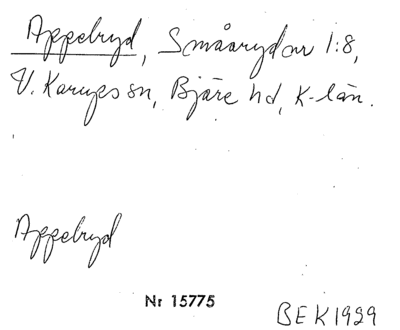 Appelryd, Småaryd ar 1:8,
V. Karups sn, Bjäre hd, K-län.
Appelryd
Nr 15775
BEK1929